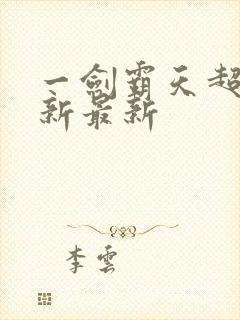 一劍霸天超
新最新
李雲